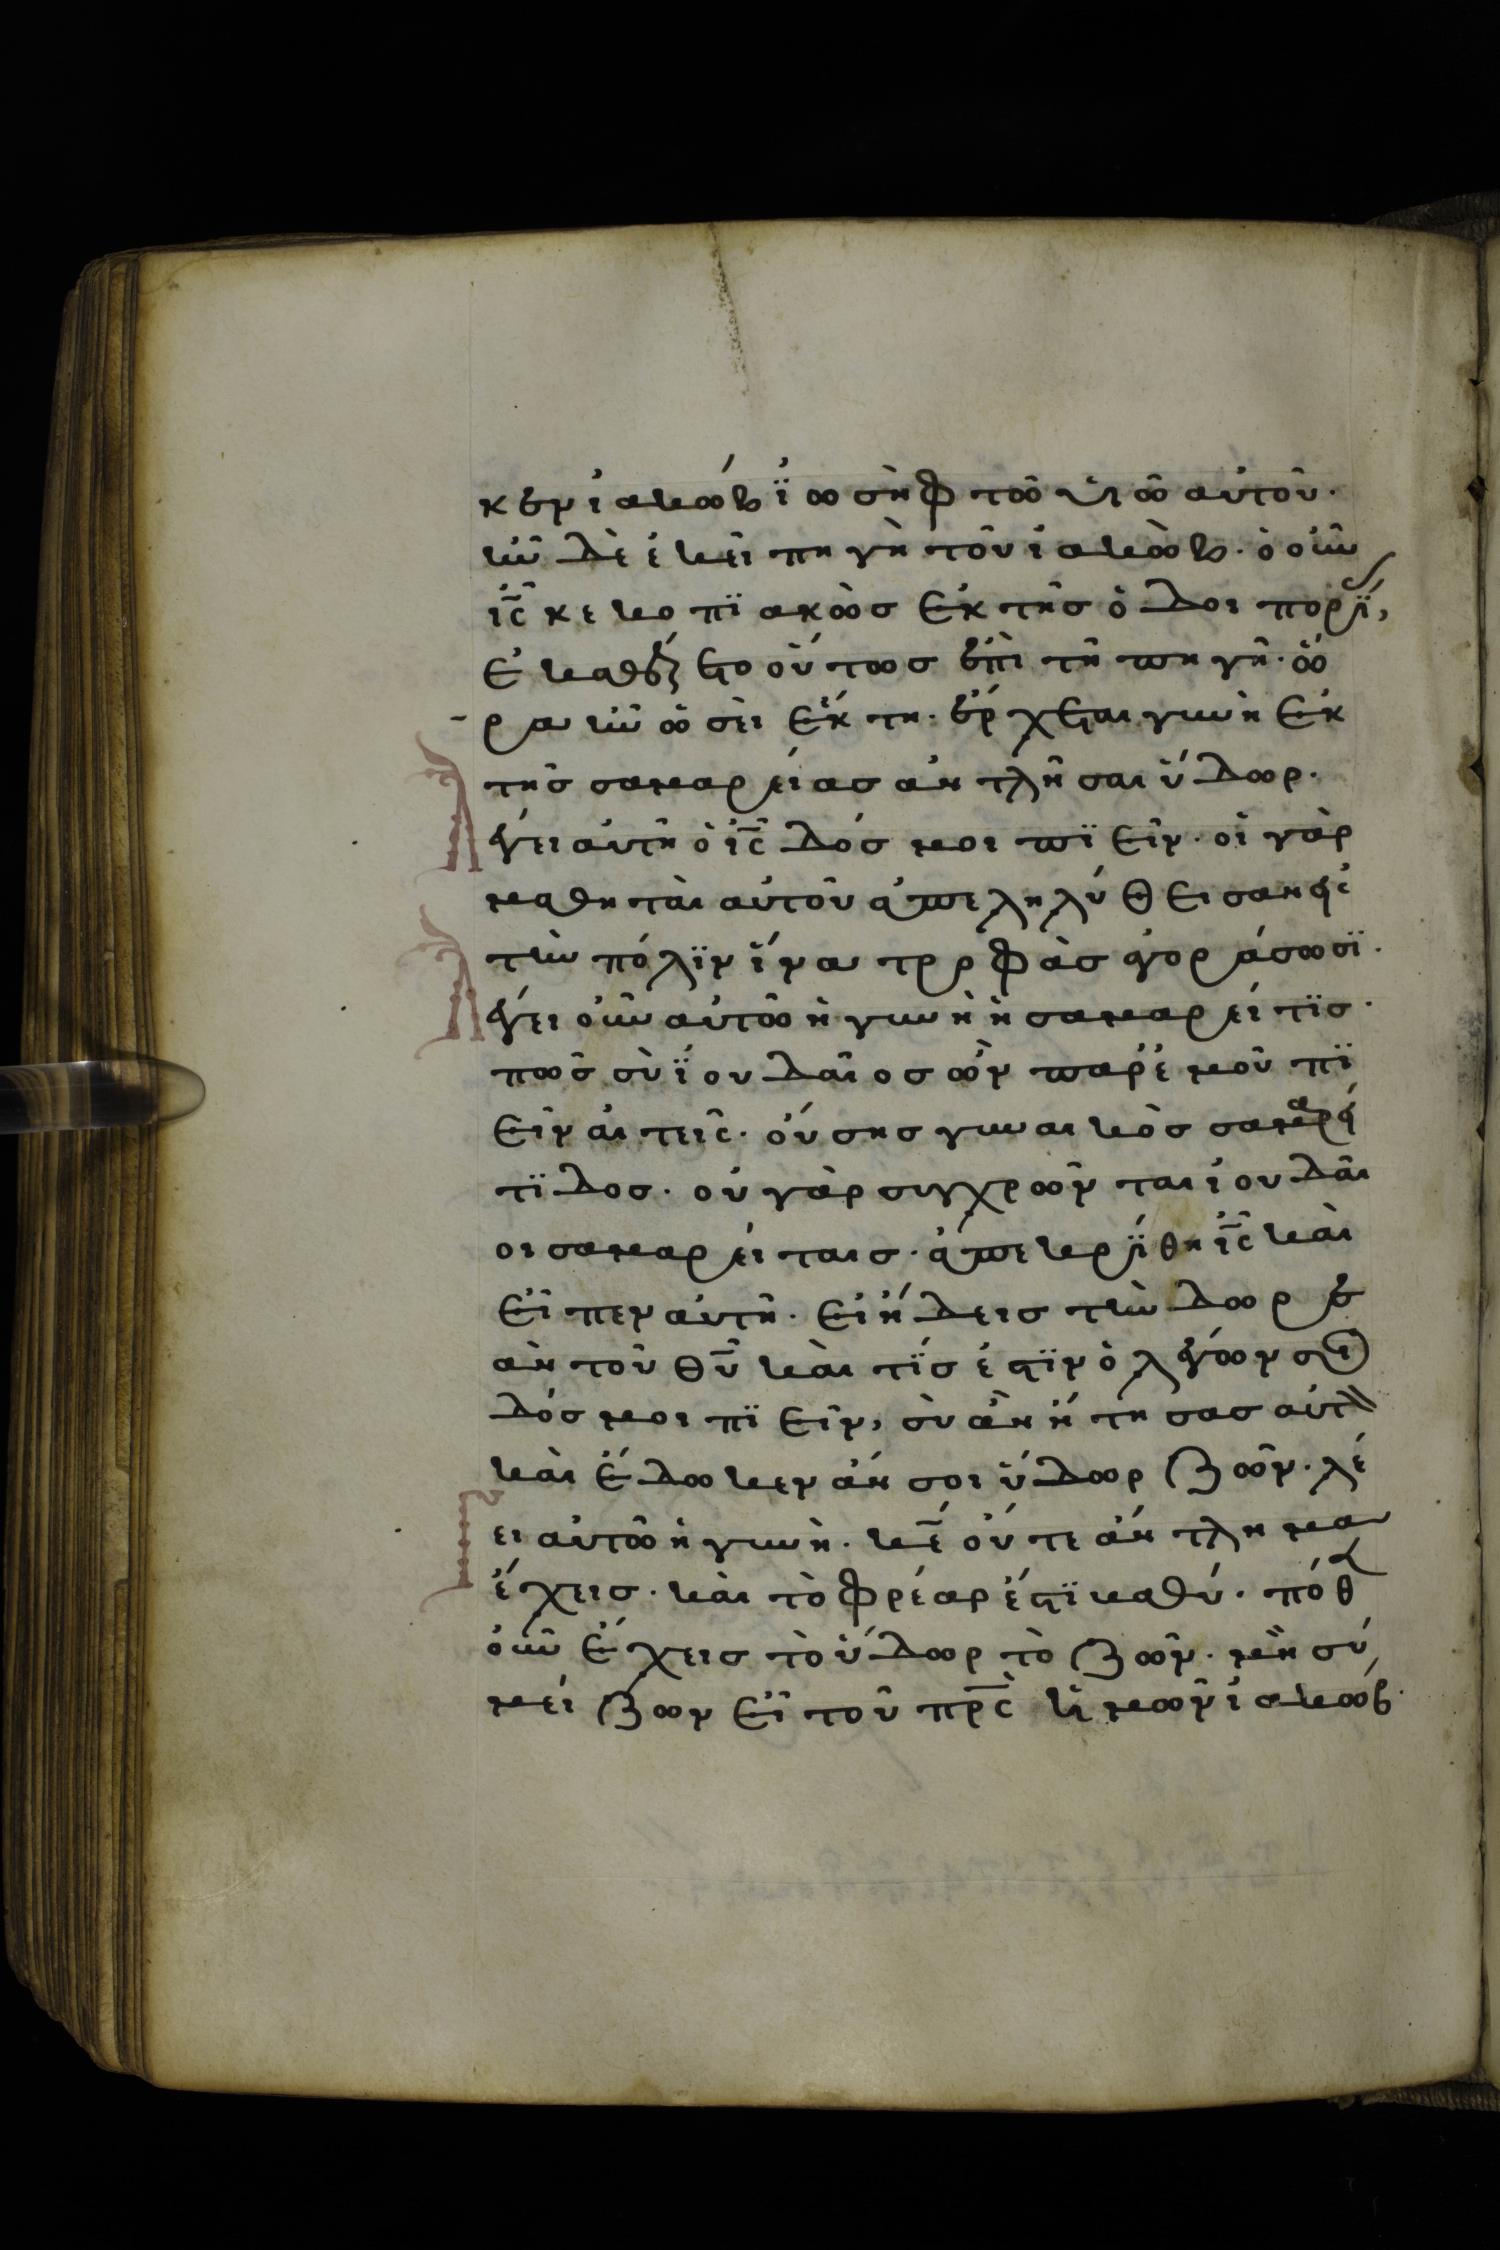 κεν ἰακώβ ἰωσὴφ τῶ υἱῶ αὐτοῦ·
ἦν δὲ ἐκεῖ πηγὴ τοῦ ἰακώβ· ὁ οὖν
ἰς κεκοπιακὼς ἐκ τῆς ὁδοιπορί,
ἐκαθέζετο οὕτως ἐπὶ τῆ πηγῆ· ὥ
ρα ἦν ὡσεὶ ἕκτη· ἔρχεται γυνὴ ἐκ
τῆς σαμαρείας ἀντλῆσαι ὕδωρ·
Λέγει αὐτῆ ὁ ἰς δός μοι πιεῖν· οἱ γὰρ
μαθηταὶ αὐτοῦ ἀπεληλύθεισαν εἰς
τὴν πόλιν ἵνα τροφὰς ἀγοράσωσι·
Λέγει οὖν αὐτῶ ἡ γυνὴ ἡ σαμαρείτις·
πῶς σὺ ἰουδαῖος ὢν παρ' ἐμοῦ πι
εῖν αἰτεῖς· οὔσης γυναικὸς σαμαρεί
τιδος· οὐ γὰρ συγχρῶνται ἰουδαῖ
οι σαμαρείταις· ἀπεκρίθη ἰς καὶ
εἶπεν αὐτῆ· εἰ ἤδεις τὴν δωρε
ὰν τοῦ θυ καὶ τίς ἐστιν ὁ λέγων σοι
δός μοι πιεῖν, σὺ ἂν ἤτησας αὐτὸν
καὶ ἔδωκεν ἄν σοι ὕδωρ ζῶν· λέγ
ει αὐτῶ ἡ γυνὴ· κε οὔτε ἄντλημα
ἔχεις· καὶ τὸ φρέαρ ἐστι βαθύ· πόθεν
οὖν ἔχεις τὸ ὕδωρ τὸ ζῶν· μὴ σὺ
μείζων εἶ τοῦ πρς ἡμῶν ἰακώβ·